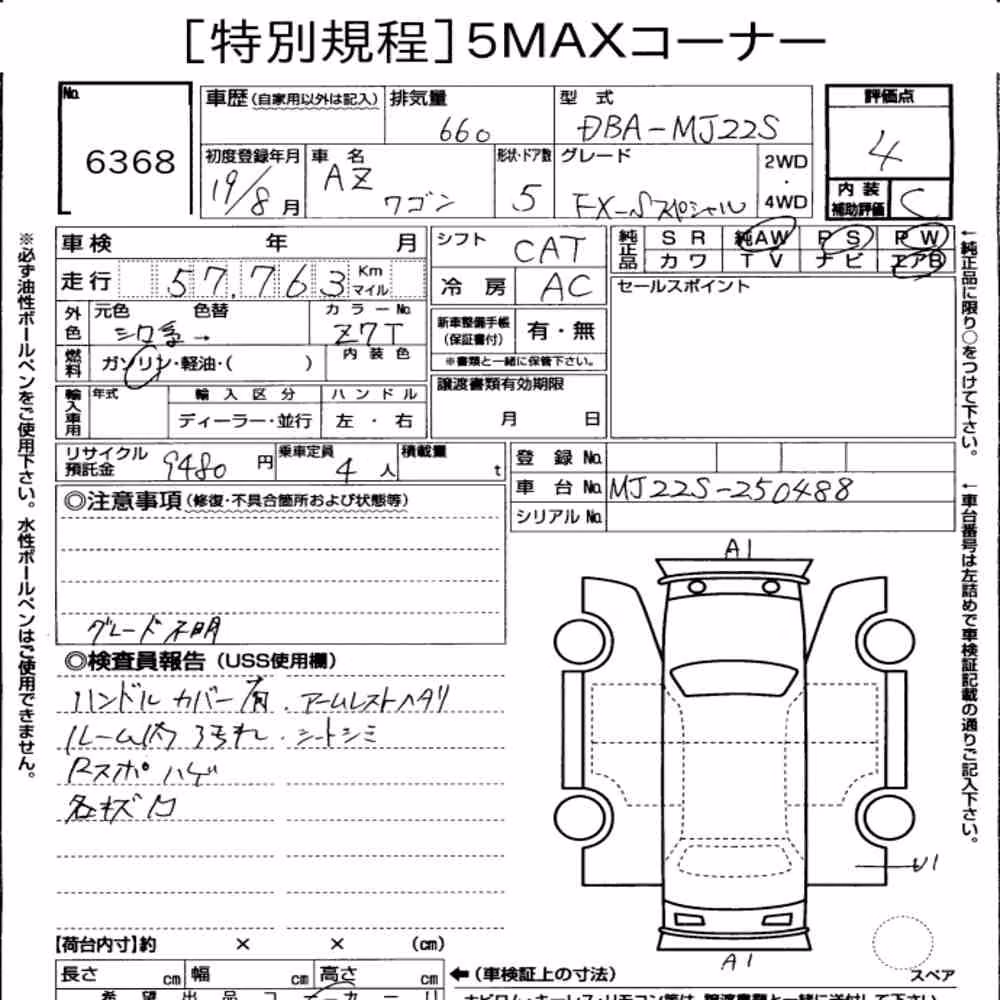 [特別規程]5MAXコーナー
No. 6368
車歴(自家用以外は記入) 排気量 660 型式 DBA-MJ22S 評価点 4
初度登録年月 19/8月 車名 AZ ワゴン 形状・ドア数 5 グレード FX-Sスペシャル 2WD・4WD 内装補助評価 C
車検 年 月 シフト CAT 純正品 SR 純AW PS PW
カワ TV ナビ エアB
走行 57,763 Kmマイル 冷房 AC セールスポイント
外色 元色 シロ系→ 色替 カラーNo. Z7T 新車整備手帳(保証書付) 有・無
※書類と一緒に保管下さい。
燃料 ガソリン・軽油・( ) 内装色
譲渡書類有効期限 月 日
輸入車用 年式 輸入区分 ハンドル
ディーラー・並行 左・右
リサイクル預託金 9480円 乗車定員 4人 積載量 t 登録No.
車台No. MJ22S-250488
シリアルNo.
◎注意事項(修復・不具合箇所および状態等)
グレード不明
◎検査員報告(USS使用欄)
ハンドルカバー有.アームレストヘタリ
ルーム内汚れ.シートシミ
Rスポハゲ
各キズ凹
A1
U1
A1
【荷台内寸】約 × × (cm)
スペア
長さ cm 幅 cm 高さ cm ←(車検証上の寸法)
希望出品コーナー
※必ず油性ボールペンをご使用下さい。水性ボールペンはご使用できません。
←純正品に限り○をつけて下さい。
←車台番号は左詰めで車検証記載の通りご記入下さい。